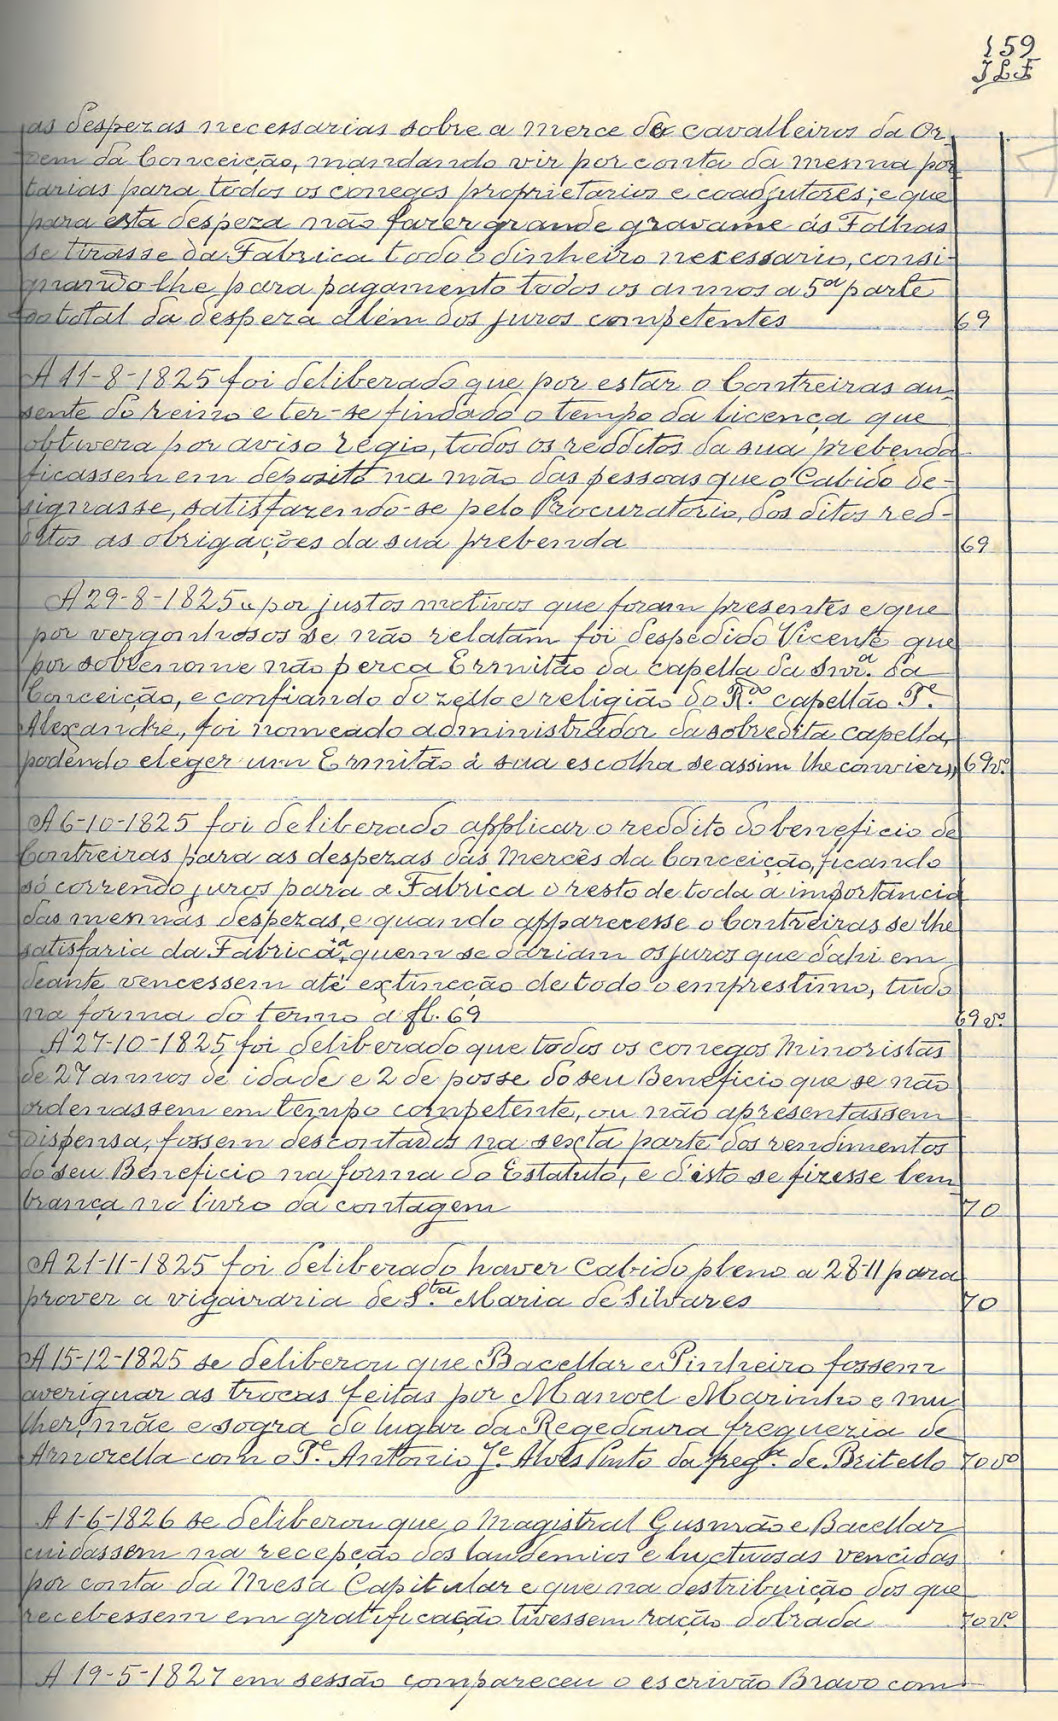 159
J L F
as despezas necessarias sobre a merce de cavalleiros da Or-
dem da Conceição, mandando vir por conta da mesma por-
tarias para todos os conegos proprietarios e coadjutores; e que
para esta despeza não fazer grande gravame ás Folhas
se tirasse da Fabrica todo o dinheiro necessario, consi-
gnando lhe para pagamento todos os annos a 5ª parte
do total da despeza além dos juros competentes 69
A 11-8-1825 foi deliberado que por estar o Contreiras au-
sente do reino e ter-se findado o tempo da licença que
obtivera por aviso regio, todos os redditos da sua prebenda
ficassem em deposito na mão das pessoas que o Cabido de-
signasse, satisfazendo-se pelo Procuratorio, dos ditos red-
ditos as obrigações da sua prebenda 69
A 29-8-1825 "por justos motivos que foram presentes e que
por vergonhosos se não relatam foi despedido Vicente que
por sobrenome não perca Ermitão da capella da Snrª. da
Conceição, e confiando do zello e religião do R.do capellão P.e
Alexandre, foi nomeado administrador da sobredita capella,
podendo eleger um Ermitão á sua escolha se assim lhe convier" 69 vº
A 6-10-1825 foi deliberado applicar o reddito do beneficio de
Contreiras para as despezas das Mercês da Conceição, ficando
só correndo juros para a Fabrica o resto de toda a importancia
das mesmas despezas, e quando apparecesse o Contreiras se lhe
satisfaria da Fabrica, a quem se dariam os juros que d'ahi em
deante vencessem até extincção de todo o emprestimo, tudo
na forma do termo a fl. 69 69 vº
A 27-10-1825 foi deliberado que todos os conegos Minoristas
de 27 annos de idade e 2 de posse do seu Beneficio que se não
ordenassem em tempo competente, ou não apresentassem
dispensa, fossem descontados na sexta parte dos rendimentos
do seu Beneficio na forma do Estatuto, e d'isto se fizesse lem-
brança no livro da contagem 70
A 21-11-1825 foi deliberado haver Cabido pleno a 28-11 para
prover a vigairaria de S.ta Maria de Silvares 70
A 15-12-1825 se deliberou que Bacellar e Pinheiro fossem
averiguar as trocas feitas por Manoel Marinho e mu-
lher, mãe e sogra do lugar da Regedoura freguezia de
Arnozella com o P.e Antonio J.e Alves Pinto da freg.ª de Britello 70 vº
A 1-6-1826 se deliberou que o Magistral Gusmão e Bacellar
cuidassem na recepção dos laudemios e luctuosas vencidas
por conta da Mesa Capitular e que na destribuição dos que
recebessem em gratificação tivessem ração dobrada 70 vº
A 19-5-1827 em sessão compareceu o escrivão Bravo com